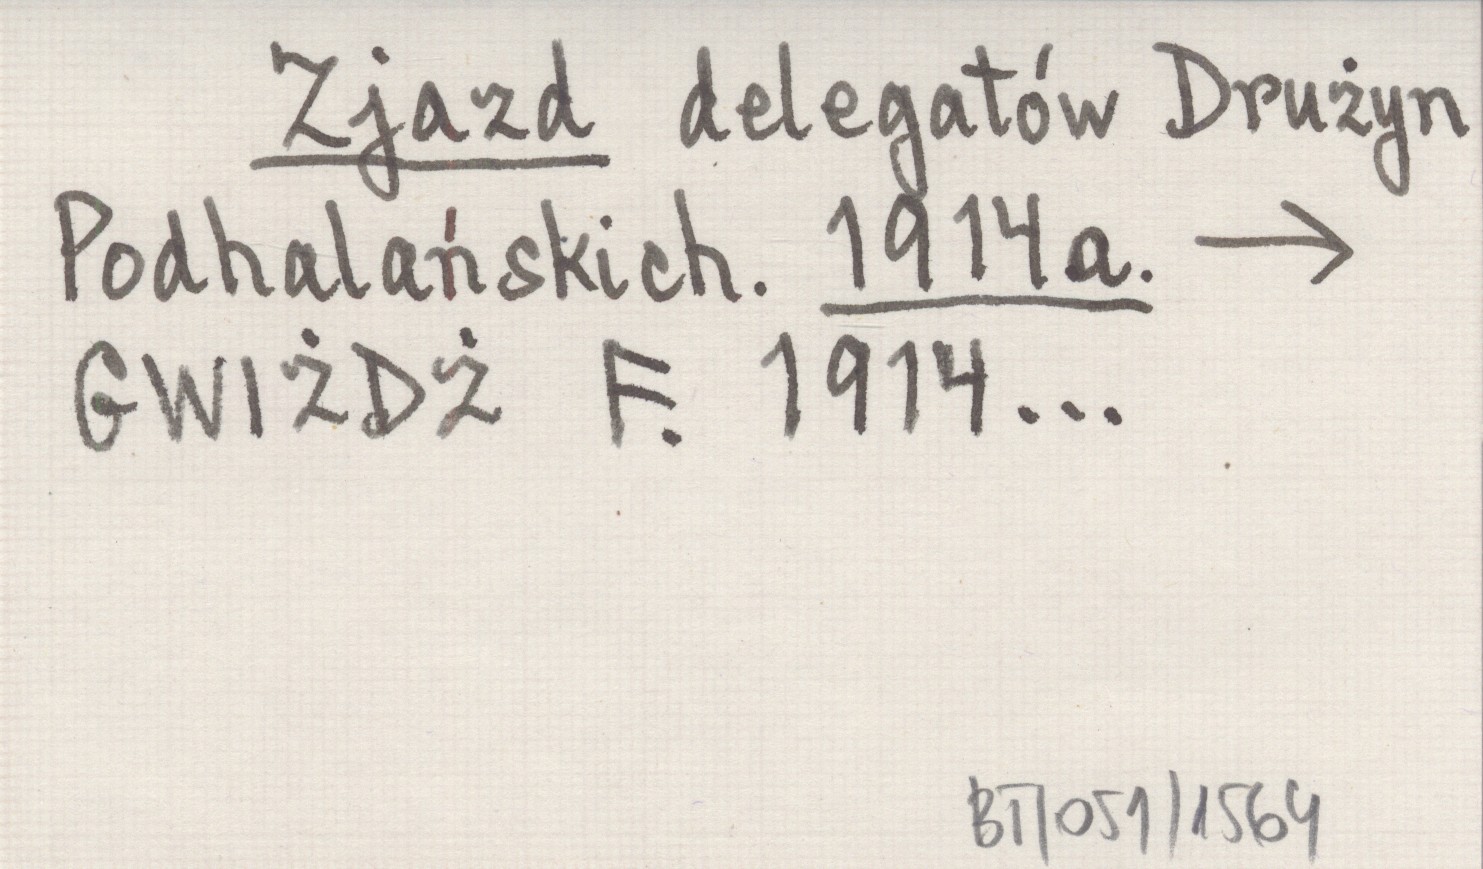 Zjazd delegatów Drużyn
Podhalańskich. 1914a. →
GWIŻDŻ F. 1914...
BT/051/1564